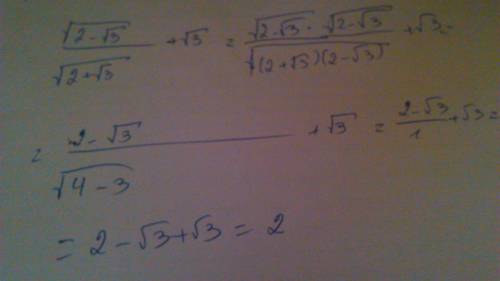 √(2-√3) / √(2+√3) + √3 = √(2-√3) · √(2-√3) / √((2+√3)(2-√3)) + √3 =
= 2-√3 / √(4-3) + √3 = 2-√3 / 1 + √3 =
= 2-√3+√3 = 2